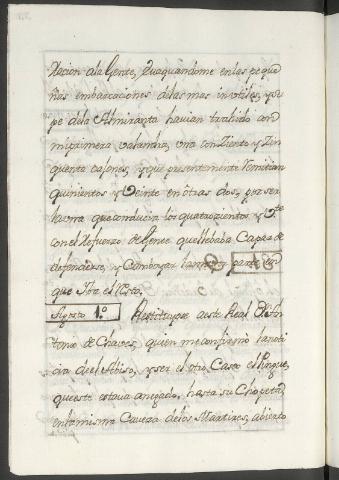 Racion ala Gente, Quaquándome enlas peque
ñas embarcaciones delas mas inutiles, y su
pe dela Almiranta havian trahido con
miprimera valandra, una con Ziento y Zin
quenta cajones, y que presentemente Remitian
quinientos y Veinte en ótras dos, que ser
con el Refuerzo de Gente quellebaba Capaz de
defenderse, y Comboyar
que Yba el Resto.
Agosto 1.º Restituyose aeste Real Dn. An
tonio de Chaves, quien meconfirmó lanoti
cia del Abiso, y ser el otro Casco el Pingue,
queeste estava anegado, hasta su Chopeta,
enlamisma Caveza delos Martires, abierto